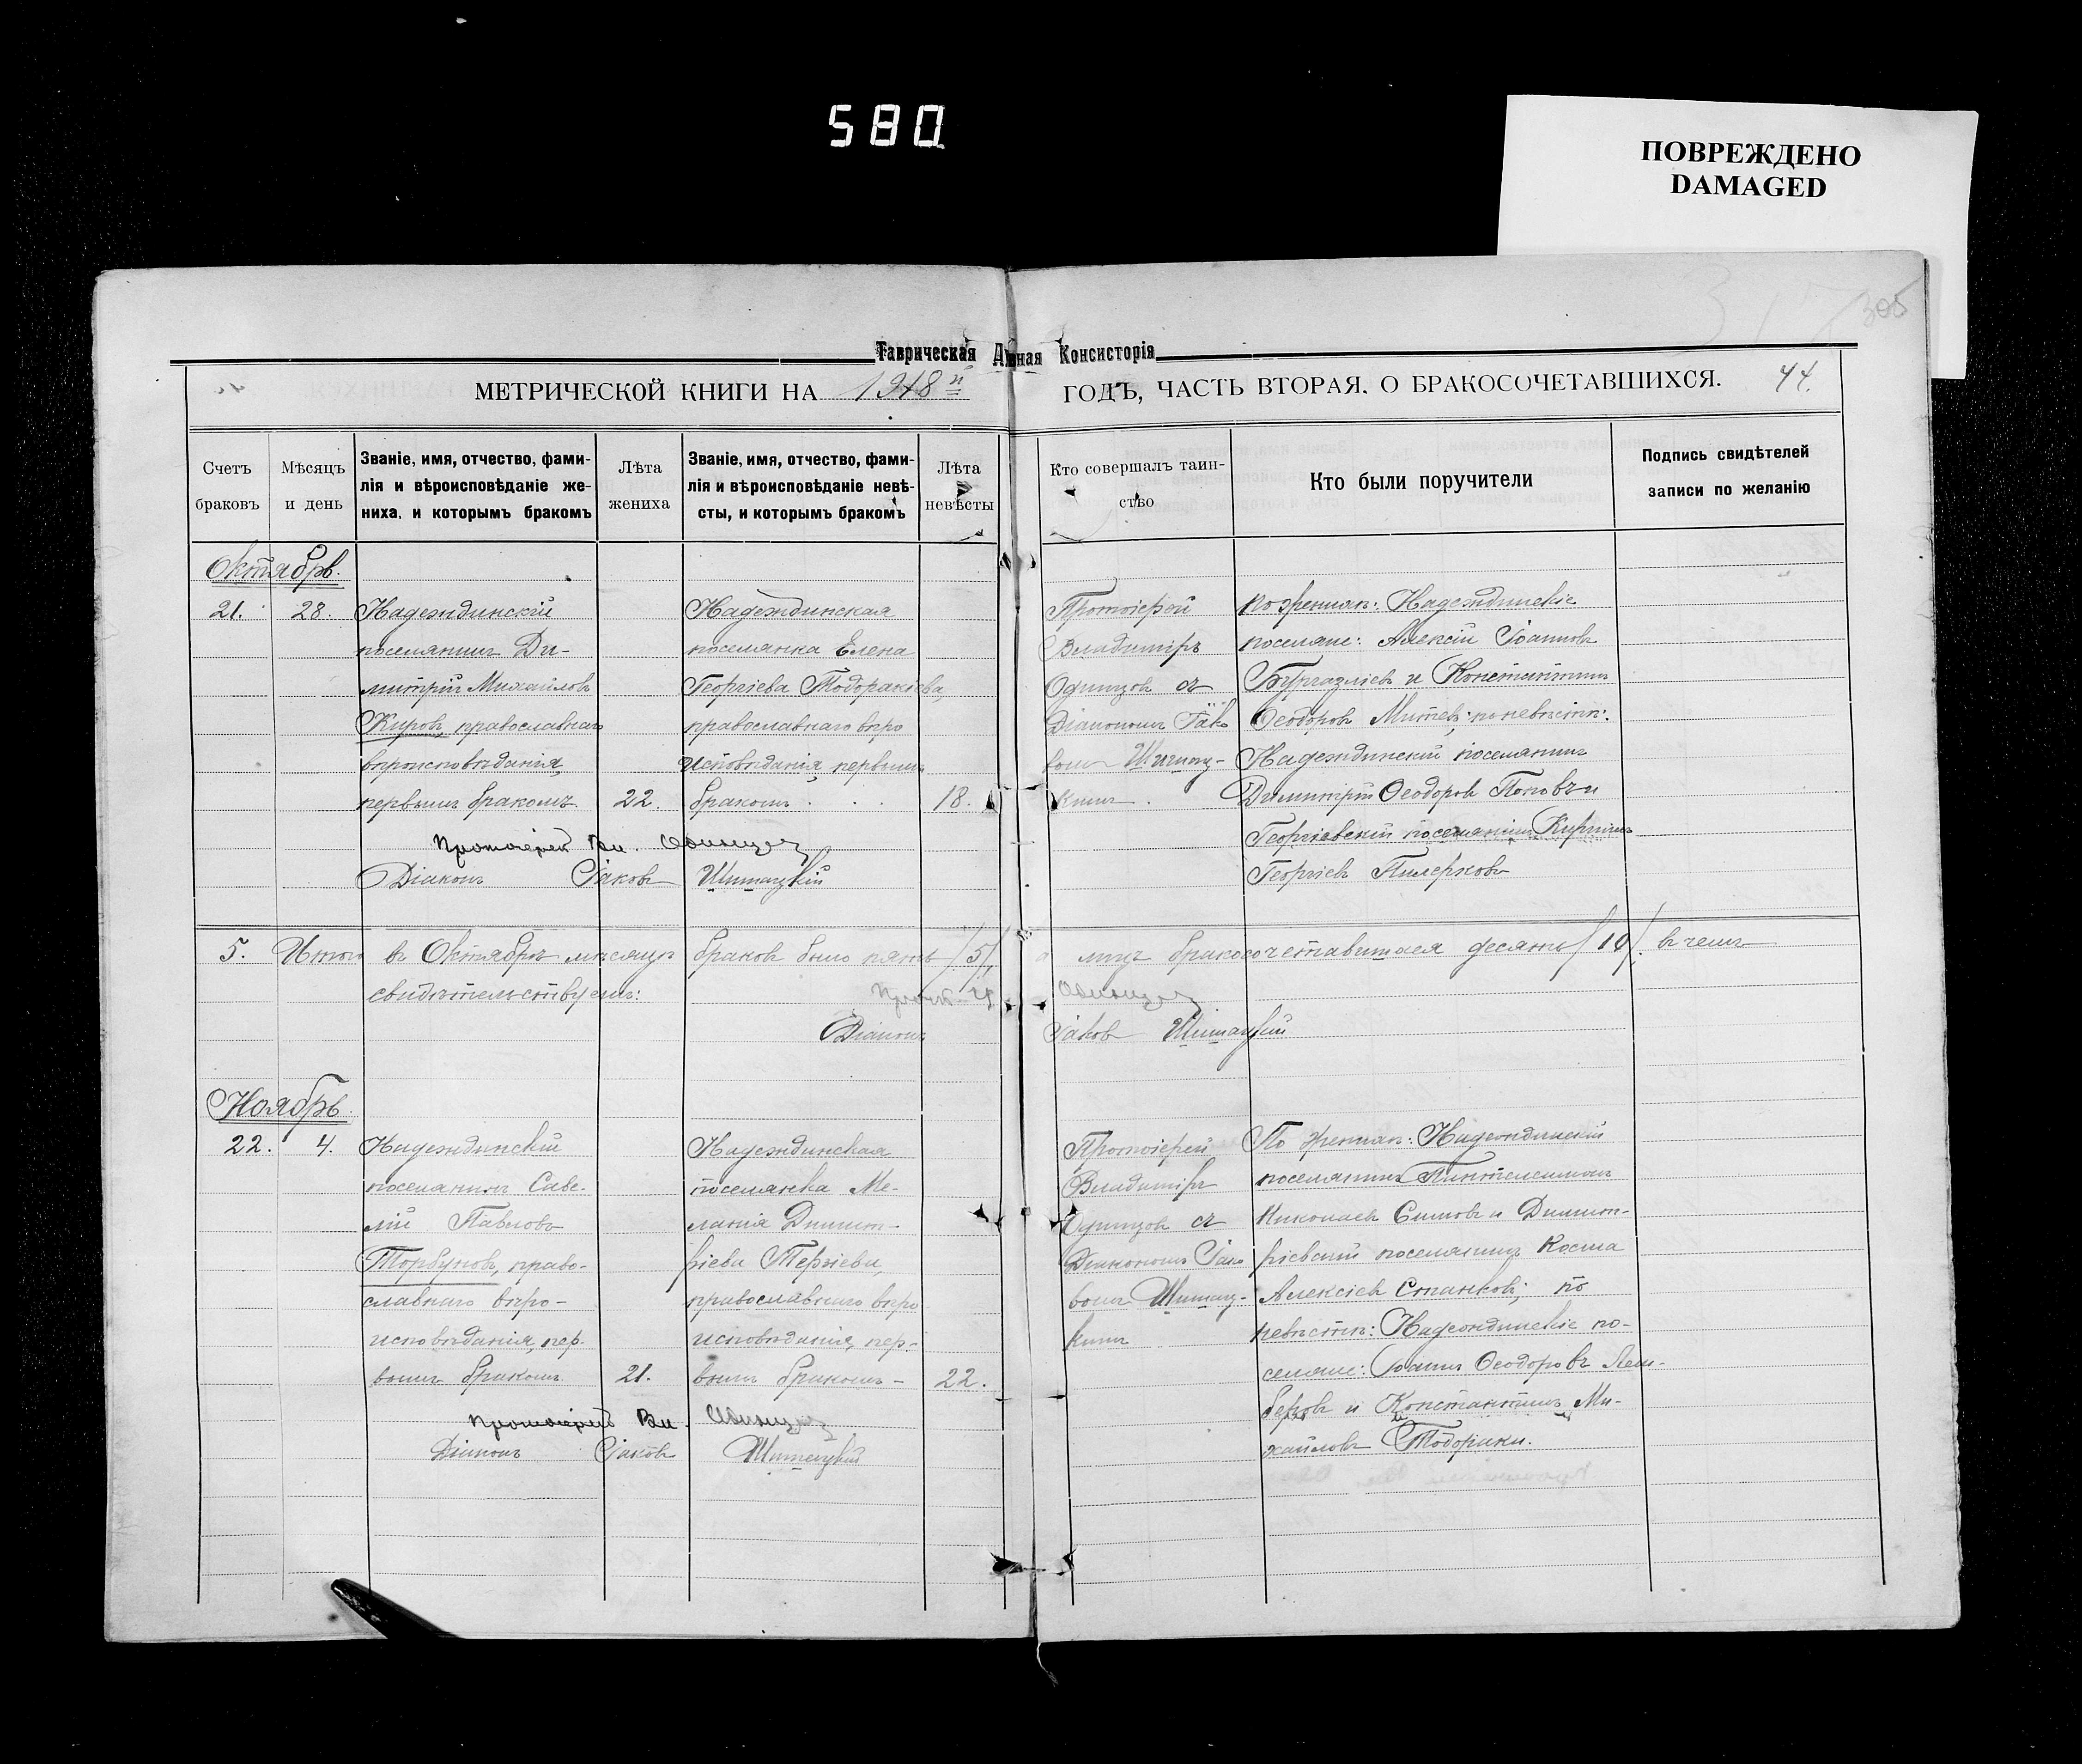 580
ПОВРЕЖДЕНО
DAMAGED
305
Таврическая Духовная Консисторія
МЕТРИЧЕСКОЙ КНИГИ НА 1918й ГОДЪ, ЧАСТЬ ВТОРАЯ, О БРАКОСОЧЕТАВШИХСЯ. 44.
Счетъ браковъ
Мѣсяцъ и день
Званіе, имя, отчество, фами-
лія и вѣроисповѣданіе же-
ниха, и которымъ бракомъ
Лѣта жениха
Званіе, имя, отчество, фами-
лія и вѣроисповѣданіе невѣ-
сты, и которымъ бракомъ
Лѣта невѣсты
Кто совершалъ таин-
ство
Кто были поручители
Подпись свидѣтелей
записи по желанію
Октябрь.
21. 28.
Надеждинскій
поселянинъ Ди-
митрій Михайловъ
Кировъ, православнаго
вѣроисповѣданія,
первымъ бракомъ 22.
Надеждинская
поселянка Елена
Георгіева Тодоракіева,
православнаго вѣро
исповѣданія, первымъ
бракомъ 18.
Протоіерей
Владиміръ
Одинцовъ съ
Діакономъ Іако
вомъ Шитиц-
кимъ.
по женихѣ: Надеждинскіе
поселяне: Алексій Іоанновъ
Бургазліевъ и Константинъ
Ѳеодоровъ Митевъ; по невѣстѣ:
Надеждинскій поселянинъ
Димитрій Ѳеодоровъ Поповъ и
Георгіевскій поселянинъ
Георгіевъ Пилерковъ
Протоіерей Вл. Одинцовъ
Діаконъ Іаковъ Шитицкій
5. Итого въ Октябрѣ мѣсяцѣ браковъ было пять /5/, а лицъ бракосочетавшихся десять /10/. въ чемъ
свидѣтельствуемъ:
Одинцовъ
Діаконъ Іаковъ Шитицкій
Ноябрь.
22. 4.
Надеждинскій
поселянинъ Саве-
лій Павловъ
Торбуновъ, право-
славнаго вѣро-
исповѣданія, пер-
вымъ бракомъ 21.
Надеждинская
поселянка Ме-
ланія Димит-
ріева Терзіева,
православнаго вѣро
исповѣданія, пер-
вымъ бракомъ - 22.
Протоіерей
Владиміръ
Одинцовъ съ
Діакономъ Іако
вомъ Шитиц-
кимъ
По женихѣ: Надеждинскій
поселянинъ Пантелеимонъ
Николаевъ Симовъ и Димит-
ріевскій поселянинъ Косма
Алексіевъ Станковъ; по
невѣстѣ: Надеждинскіе по-
селяне: Іоаннъ Ѳеодоровъ
и Константинъ Ми-
хайловъ Тодораки.
Протоіерей Вл. Одинцовъ
Діаконъ Іаковъ Шитицкій